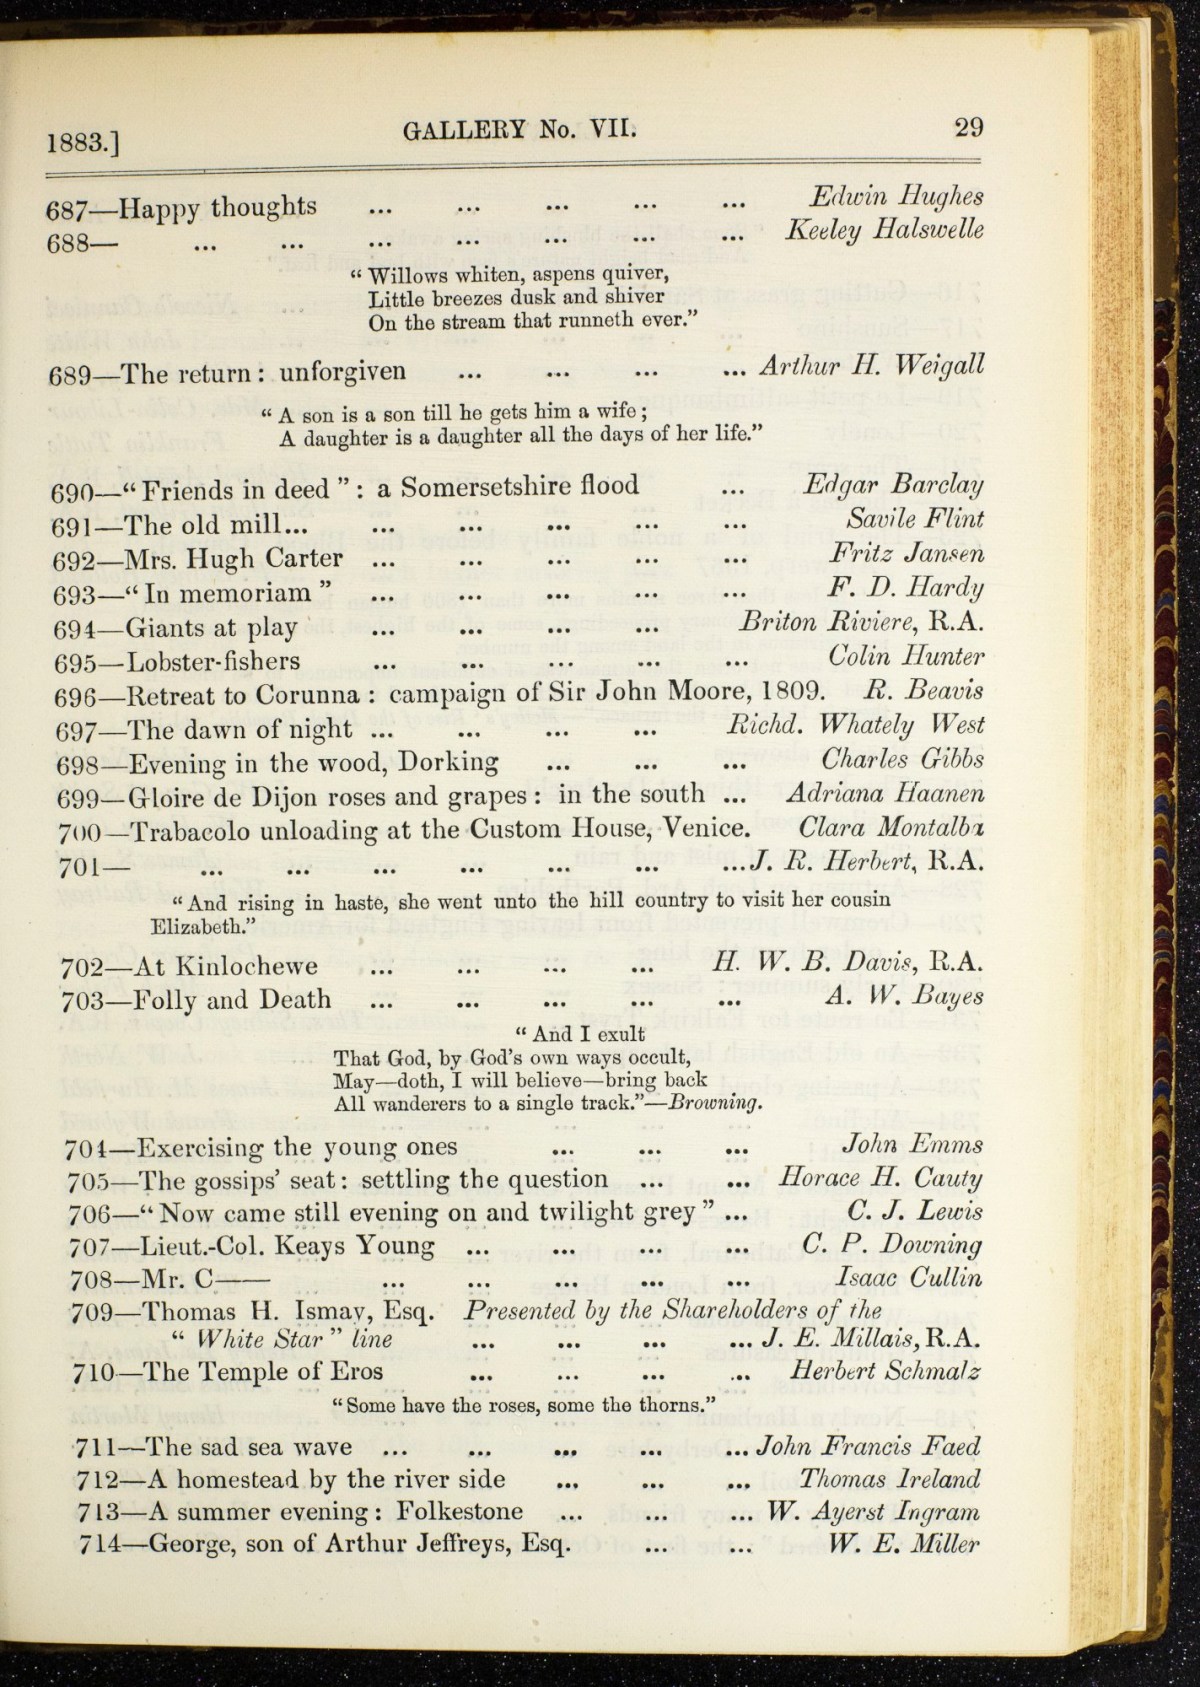 1883.] GALLERY No. VII. 29
687—Happy thoughts ... ... ... ... ... Edwin Hughes
688— ... ... ... ... ... ... ... Keeley Halswelle
“ Willows whiten, aspens quiver,
Little breezes dusk and shiver
On the stream that runneth ever.”
689—The return : unforgiven ... ... ... ... Arthur H. Weigall
“ A son is a son till he gets him a wife ;
A daughter is a daughter all the days of her life.”
690—“ Friends in deed ” : a Somersetshire flood ... Edgar Barclay
691—The old mill... ... ... ... ... ... Savile Flint
692—Mrs. Hugh Carter ... ... ... ... ... Fritz Jansen
693—“ In memoriam ” ... ... ... ... ... F. D. Hardy
694—Giants at play ... ... ... ... Briton Riviere, R.A.
695—Lobster-fishers ... ... ... ... ... Colin Hunter
696—Retreat to Corunna : campaign of Sir John Moore, 1809. R. Beavis
697—The dawn of night ... ... ... ... Richd. Whately West
698—Evening in the wood, Dorking ... ... ... Charles Gibbs
699—Gloire de Dijon roses and grapes : in the south ... Adriana Haanen
700—Trabacolo unloading at the Custom House, Venice. Clara Montalba
701— ... ... ... ... ... ... ... J. R. Herbert, R.A.
“ And rising in haste, she went unto the hill country to visit her cousin
Elizabeth.”
702—At Kinlochewe ... ... ... ... H. W. B. Davis, R.A.
703—Folly and Death ... ... ... ... ... A. W. Bayes
“ And I exult
That God, by God’s own ways occult,
May—doth, I will believe—bring back
All wanderers to a single track.”—Browning.
704—Exercising the young ones ... ... ... John Emms
705—The gossips’ seat : settling the question ... ... Horace H. Cauty
706—“ Now came still evening on and twilight grey ” ... C. J. Lewis
707—Lieut.-Col. Keays Young ... ... ... ... C. P. Downing
708—Mr. C—— ... ... ... ... ... Isaac Cullin
709—Thomas H. Ismay, Esq. Presented by the Shareholders of the
“ White Star ” line ... ... ... ... J. E. Millais, R.A.
710—The Temple of Eros ... ... ... ... Herbert Schmalz
“ Some have the roses, some the thorns.”
711—The sad sea wave ... ... ... ... ... John Francis Faed
712—A homestead by the river side ... ... ... Thomas Ireland
713—A summer evening : Folkestone ... ... ... W. Ayerst Ingram
714—George, son of Arthur Jeffreys, Esq. ... ... W. E. Miller